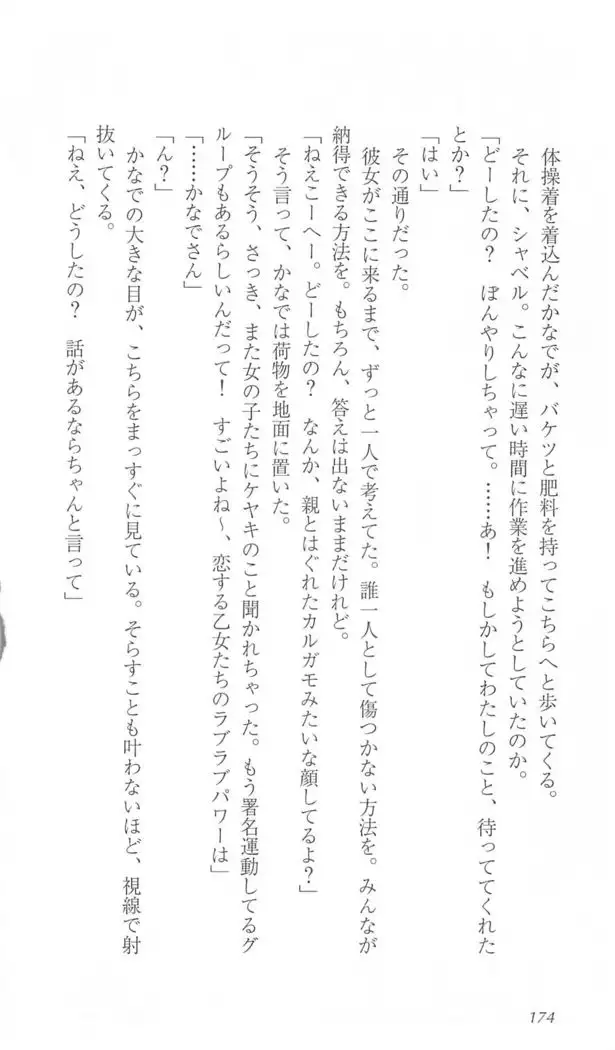 体操着を着込んだかなでが、バケツと肥料を持ってこちらへと歩いてくる。
　それに、シャベル。こんなに遅い時間に作業を進めようとしていたのか。
「どーしたの？　ぼんやりしちゃって。……あ！　もしかしてわたしのこと、待っててくれた
とか？」
「はい」
　その通りだった。
　彼女がここに来るまで、ずっと一人で考えてた。誰一人として傷つかない方法を。みんなが
納得できる方法を。もちろん、答えは出ないままだけれど。
「ねえこーへー。どーしたの？　なんか、親とはぐれたカルガモみたいな顔してるよ？」
　そう言って、かなでは荷物を地面に置いた。
「そうそう、さっき、また女の子たちにケヤキのこと聞かれちゃった。もう署名運動してるグ
ループもあるらしいんだって！　すごいよね～、恋する乙女たちのラブラブパワーは」
「……かなでさん」
「ん？」
　かなでの大きな目が、こちらをまっすぐに見ている。そらすことも叶わないほど、視線で射
抜いてくる。
「ねえ、どうしたの？　話があるならちゃんと言って」
174